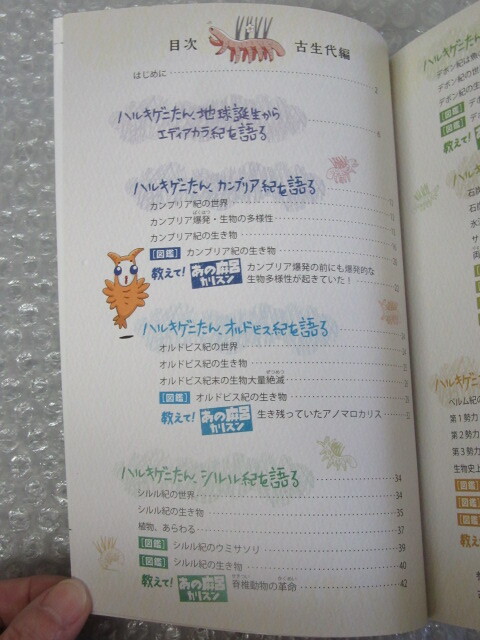 目次 古生代編
はじめに 2
ハルキゲニたん、地球誕生から
エディアカラ紀を語る 6
ハルキゲニたん、カンブリア紀を語る
カンブリア紀の世界
カンブリア爆発・生物の多様性
ばくはつ
カンブリア紀の生き物
[図鑑] カンブリア紀の生き物
教えて! あの麻呂カリスン カンブリア爆発の前にも爆発的な
生物多様性が起きていた!
ハルキゲニたん、オルドビス紀を語る
オルドビス紀の世界
オルドビス紀の生き物
オルドビス紀末の生物大量絶滅
ぜつめつ
[図鑑] オルドビス紀の生き物
教えて! あの麻呂カリスン 生き残っていたアノマロカリス 32
ハルキゲニたん、シルル紀を語る 34
シルル紀の世界 34
シルル紀の生き物 35
植物、あらわる 37
[図鑑] シルル紀のウミサソリ 39
[図鑑] シルル紀の生き物 40
教えて! あの麻呂カリスン 脊椎動物の革命 42
せきつい
かくめい
ハルキゲニ
デボン紀の世
デボン紀の生
[図鑑] デ
[図鑑]
教えて!
ハルキゲニ
ペルム紀の
第1勢力
第2勢力
第3勢力
生物史上
[図鑑]
[図鑑]
[図鑑]
教えて!